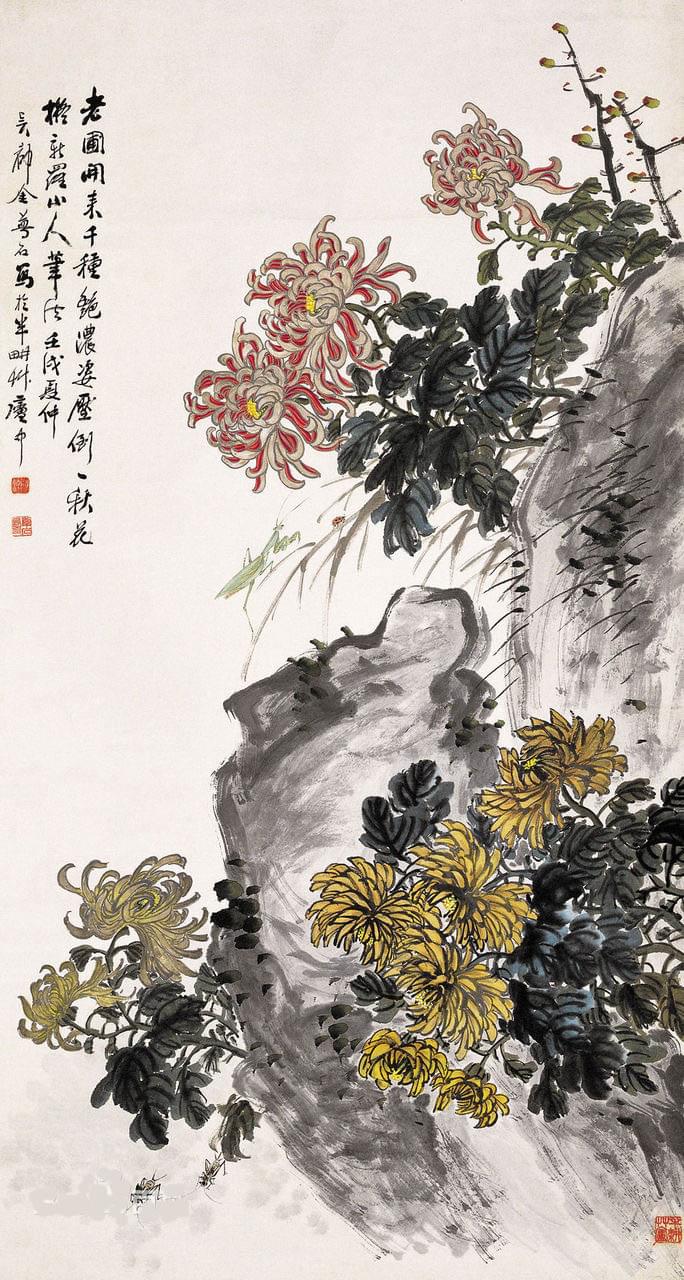 老圃開來千種艷濃姿壓倒一秋花
擬新羅山人筆法壬戌夏仲
吴郡金尊石寫於半畊艸廬中